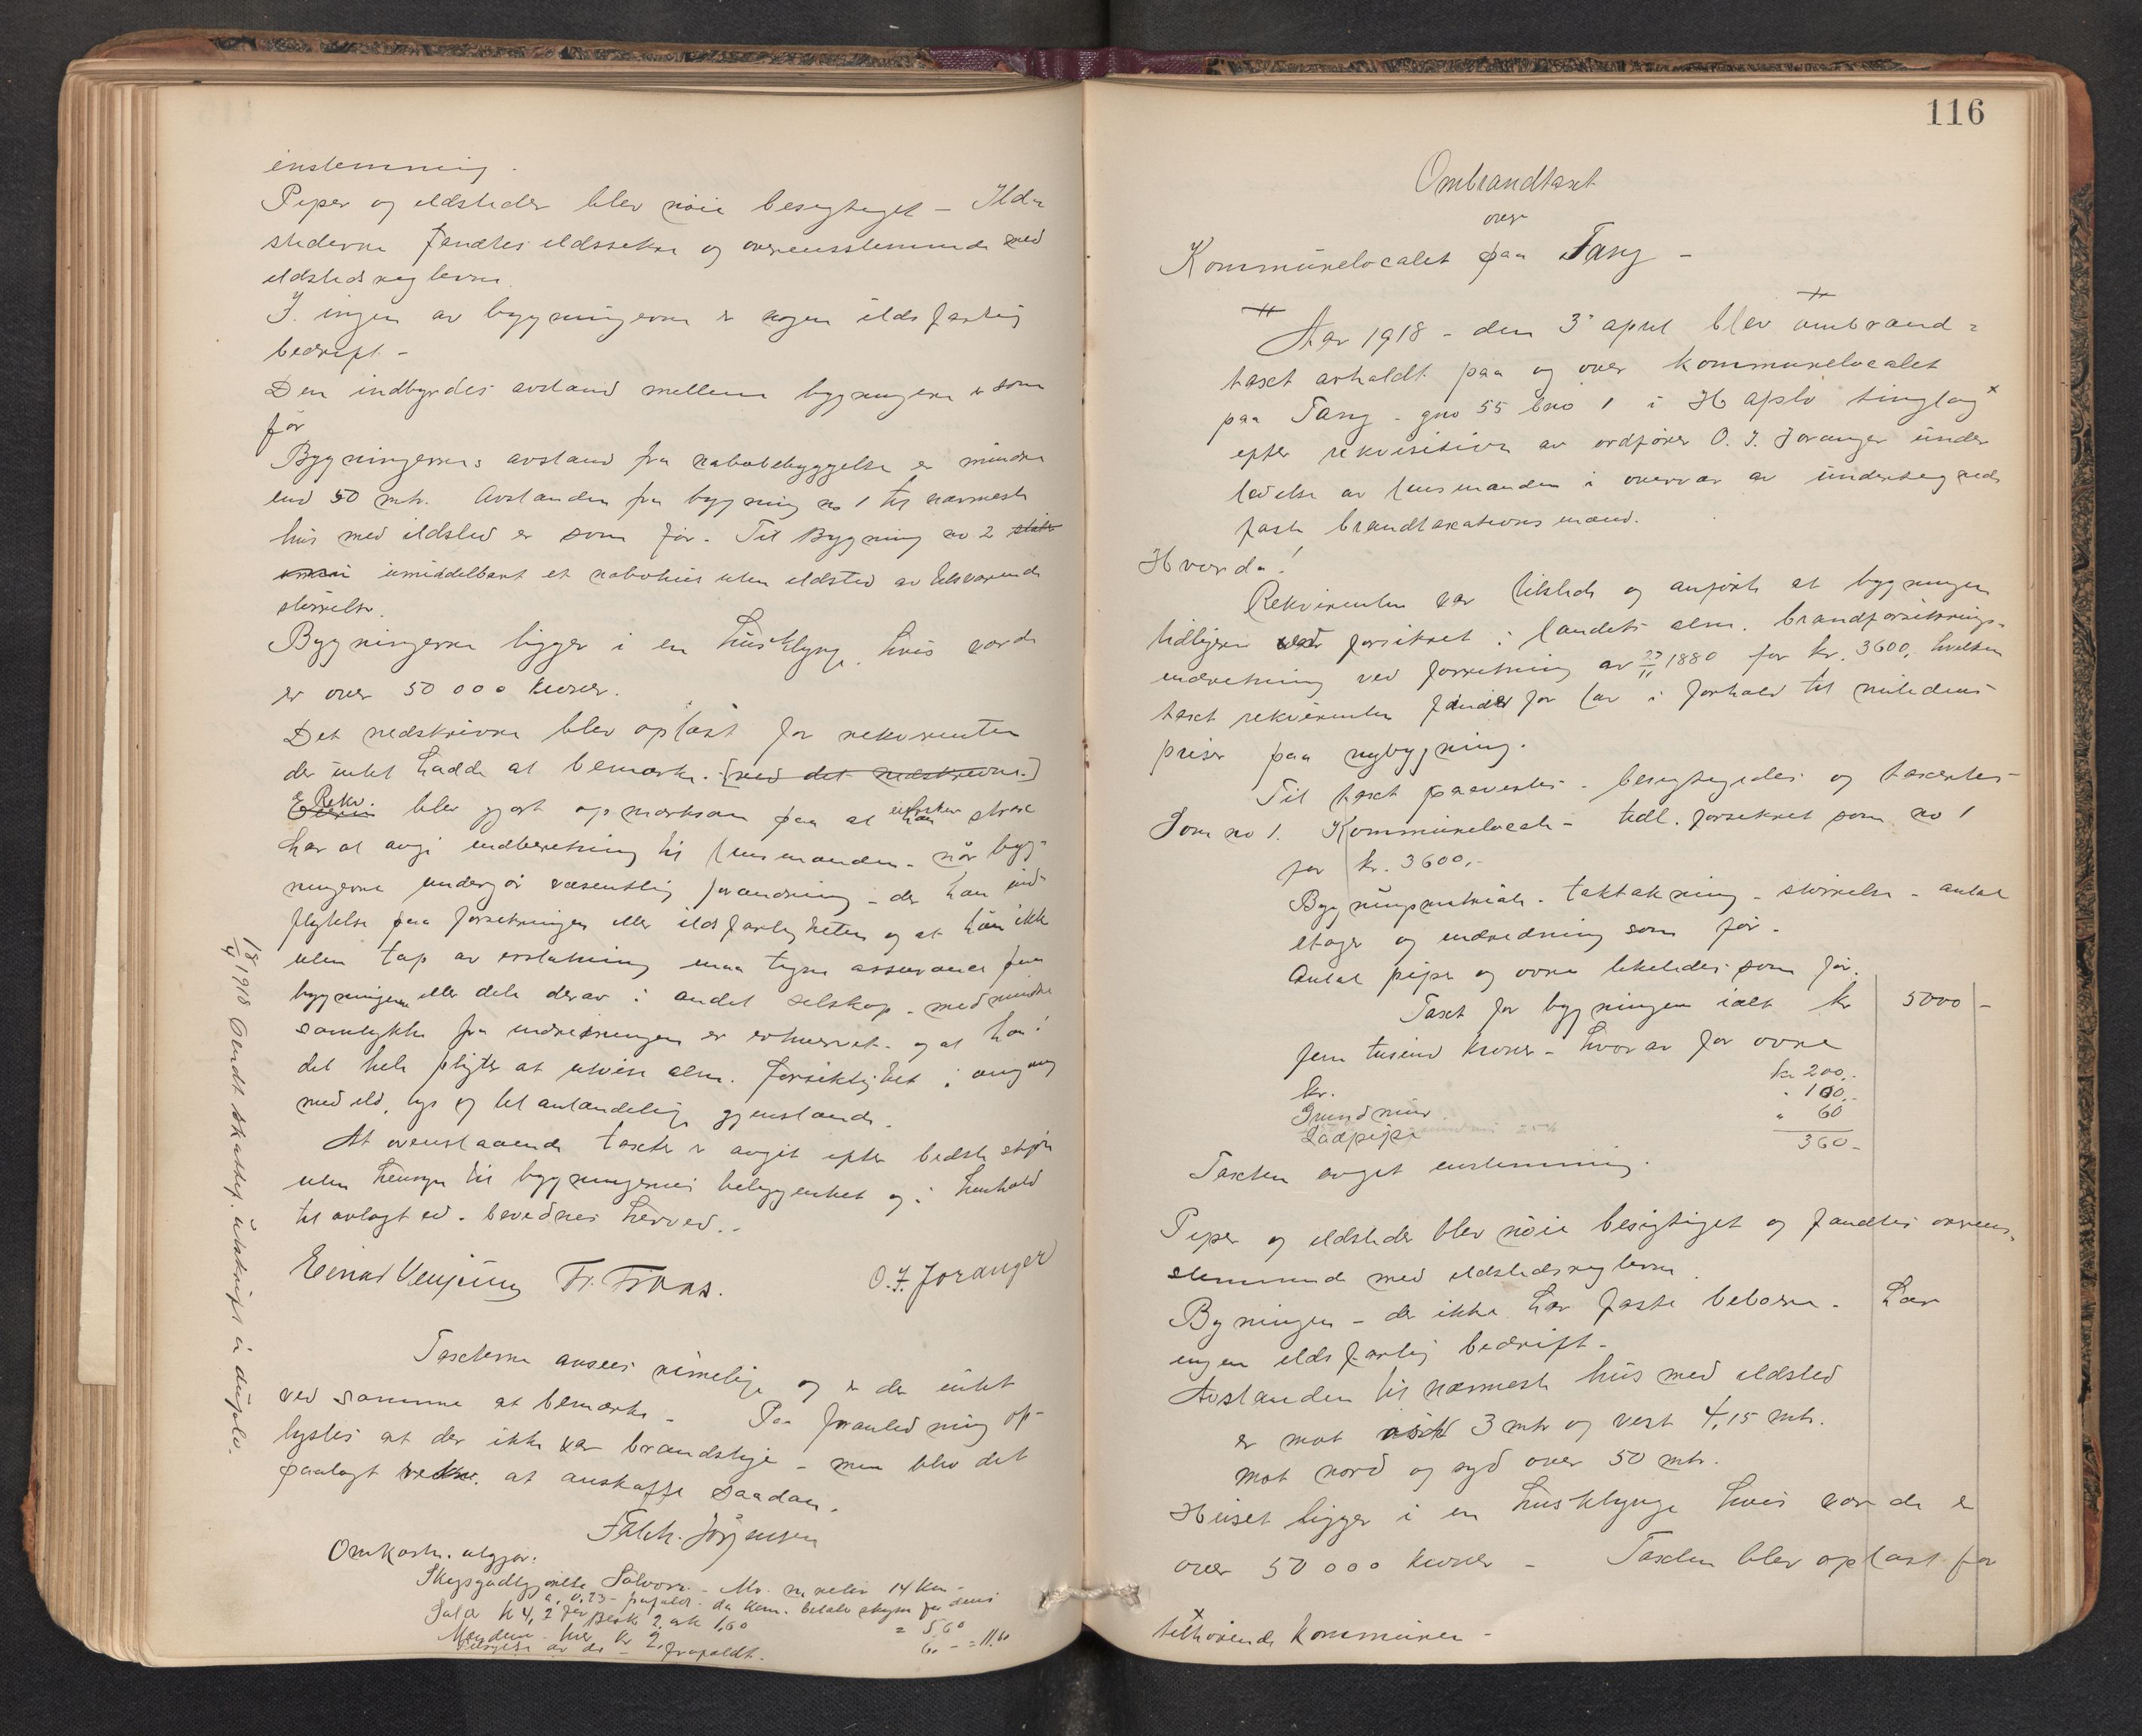 enstemmig.
Piper og ildsteder blev nøie besigtiget – Ild-
stederne fandtes ildssikre og overensstemmende med
ildstedsreglerne.
I ingen av bygningerne er nogen ildsfarlig
bedrift –
Den indbyrdes avstand mellem bygningerne er som
før
Bygningernes avstand fra nabobebyggelse er mindre
end 50 mtr. Avstanden fra bygning no 1 til nærmeste
hus med ildsted er som før. Til Bygning no 2
umiddelbart et nabohus uten ildsted av tilsvarende
størrelse.
Bygningerne ligger i en husklynge, hvis værdi
er over 50 000 kroner.
Det nedskrevne blev oplæst for rekvirenten
der intet hadde at bemærke. [ved det nedskrevne.]
Rekv. blev gjort opmerksom paa at han straks
har at avgi indberetning til lensmanden – når byg-
ningerne undergår væsentlig forandring – der kan ind-
flytelse paa forsikringen eller ildsfarligheten og at han ikke
uten tap av erstatning maa tegne assurance paa
bygningerne eller dele derav i andet selskap – med mindre
samtykke fra indretningen er erhvervet – og at han i
det hele pligter at utvise alm. forsiktighet i omgang
med ild, lys og let antændelige gjenstande.
At ovenstaaende takster er avgit efter bedste skjøn
uten hensyn til bygningernes beliggenhet og i henhold
til avlagt ed – bevidnes herved. –
Einar Venjum Fr. Fraas. O. J. Joranger
Taksterne ansees rimelige og er der intet
ved samme at bemærke – Paa foranledning op-
lystes at der ikke var brandstige – men blev det
paalagt rekv. at anskaffe saadan.
Falch. Jørgensen
Omkostn. utgjør:
14 km –
= 5,60
6. – = 11.60
18/4 1918 sendt skattef. utskrift in duplo.
116
Ombrandtaxt
over
Kommunelocalet paa Tang –
Aar 1918 – den 3' april blev ombrand-
taxt avholdt paa og over kommunelocalet
paa Tang – gno 55 bno 1 i Hafslo tinglag x
efter rekvisition av ordfører O. J. Joranger under
ledelse av lensmanden i overvær av undertegnede
faste brandtaxationsmænd.
Hvorda!
Rekvirenten var tilstede og anførte at bygningen
tidligere var forsikret i landets alm. brandforsikrings-
indretning ved forretning av 23/11 1880 for kr. 3600, hvilken
taxt rekvirenten finder for lav i forhold til nutidens
priser paa nybygning.
Til taxt paavistes – besigtigedes og taxertes
Som no 1. Kommunelocale – tidl. forsikret som no 1
for kr. 3600,–
Bygningsmateriale – taktækning – størrelse – antal
etager og indredning som før –
Antal piper og ovne likeledes som før.
Taxt for bygningen ialt kr 5000 –
fem tusind kroner – hvorav for ovne
kr 200,–
kr. " 100,–
Grundmur " 60
Ladpipe 360 –
Taxten avgit enstemmig.
Piper og ildsteder blev nøie besigtiget og fandtes overens-
stemmende med ildstedsreglerne.
Bygningen – der ikke har faste beboere – har
ingen ildsfarlig bedrift –
Avstanden til nærmeste hus med ildsted
er mot øst 3 mtr og vest 4,15 mtr.
mot nord og syd over 50 mtr.
Huset ligger i en husklynge hvis værdi er
over 50 000 kroner – Taxten blev oplæst for
x
tilhørende kommunen –